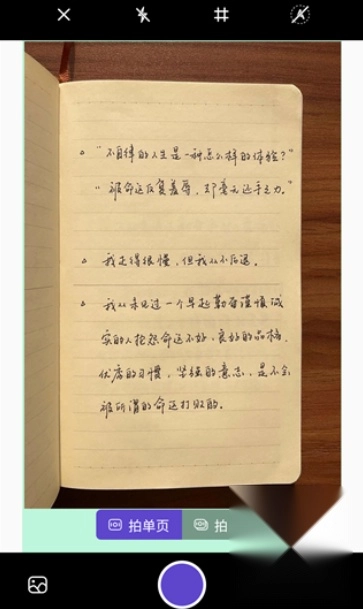 "不自律的人生是一种怎么样的体验?"
"被命运反复羞辱,却毫无还手之力。"
我走得很慢,但我从不后退。
我从未见过一个早起勤奋谨慎诚
实的人抱怨命运不好,良好的品格,
优秀的习惯,坚强的意志,是不会
被所谓的命运打败的。
拍单页
拍